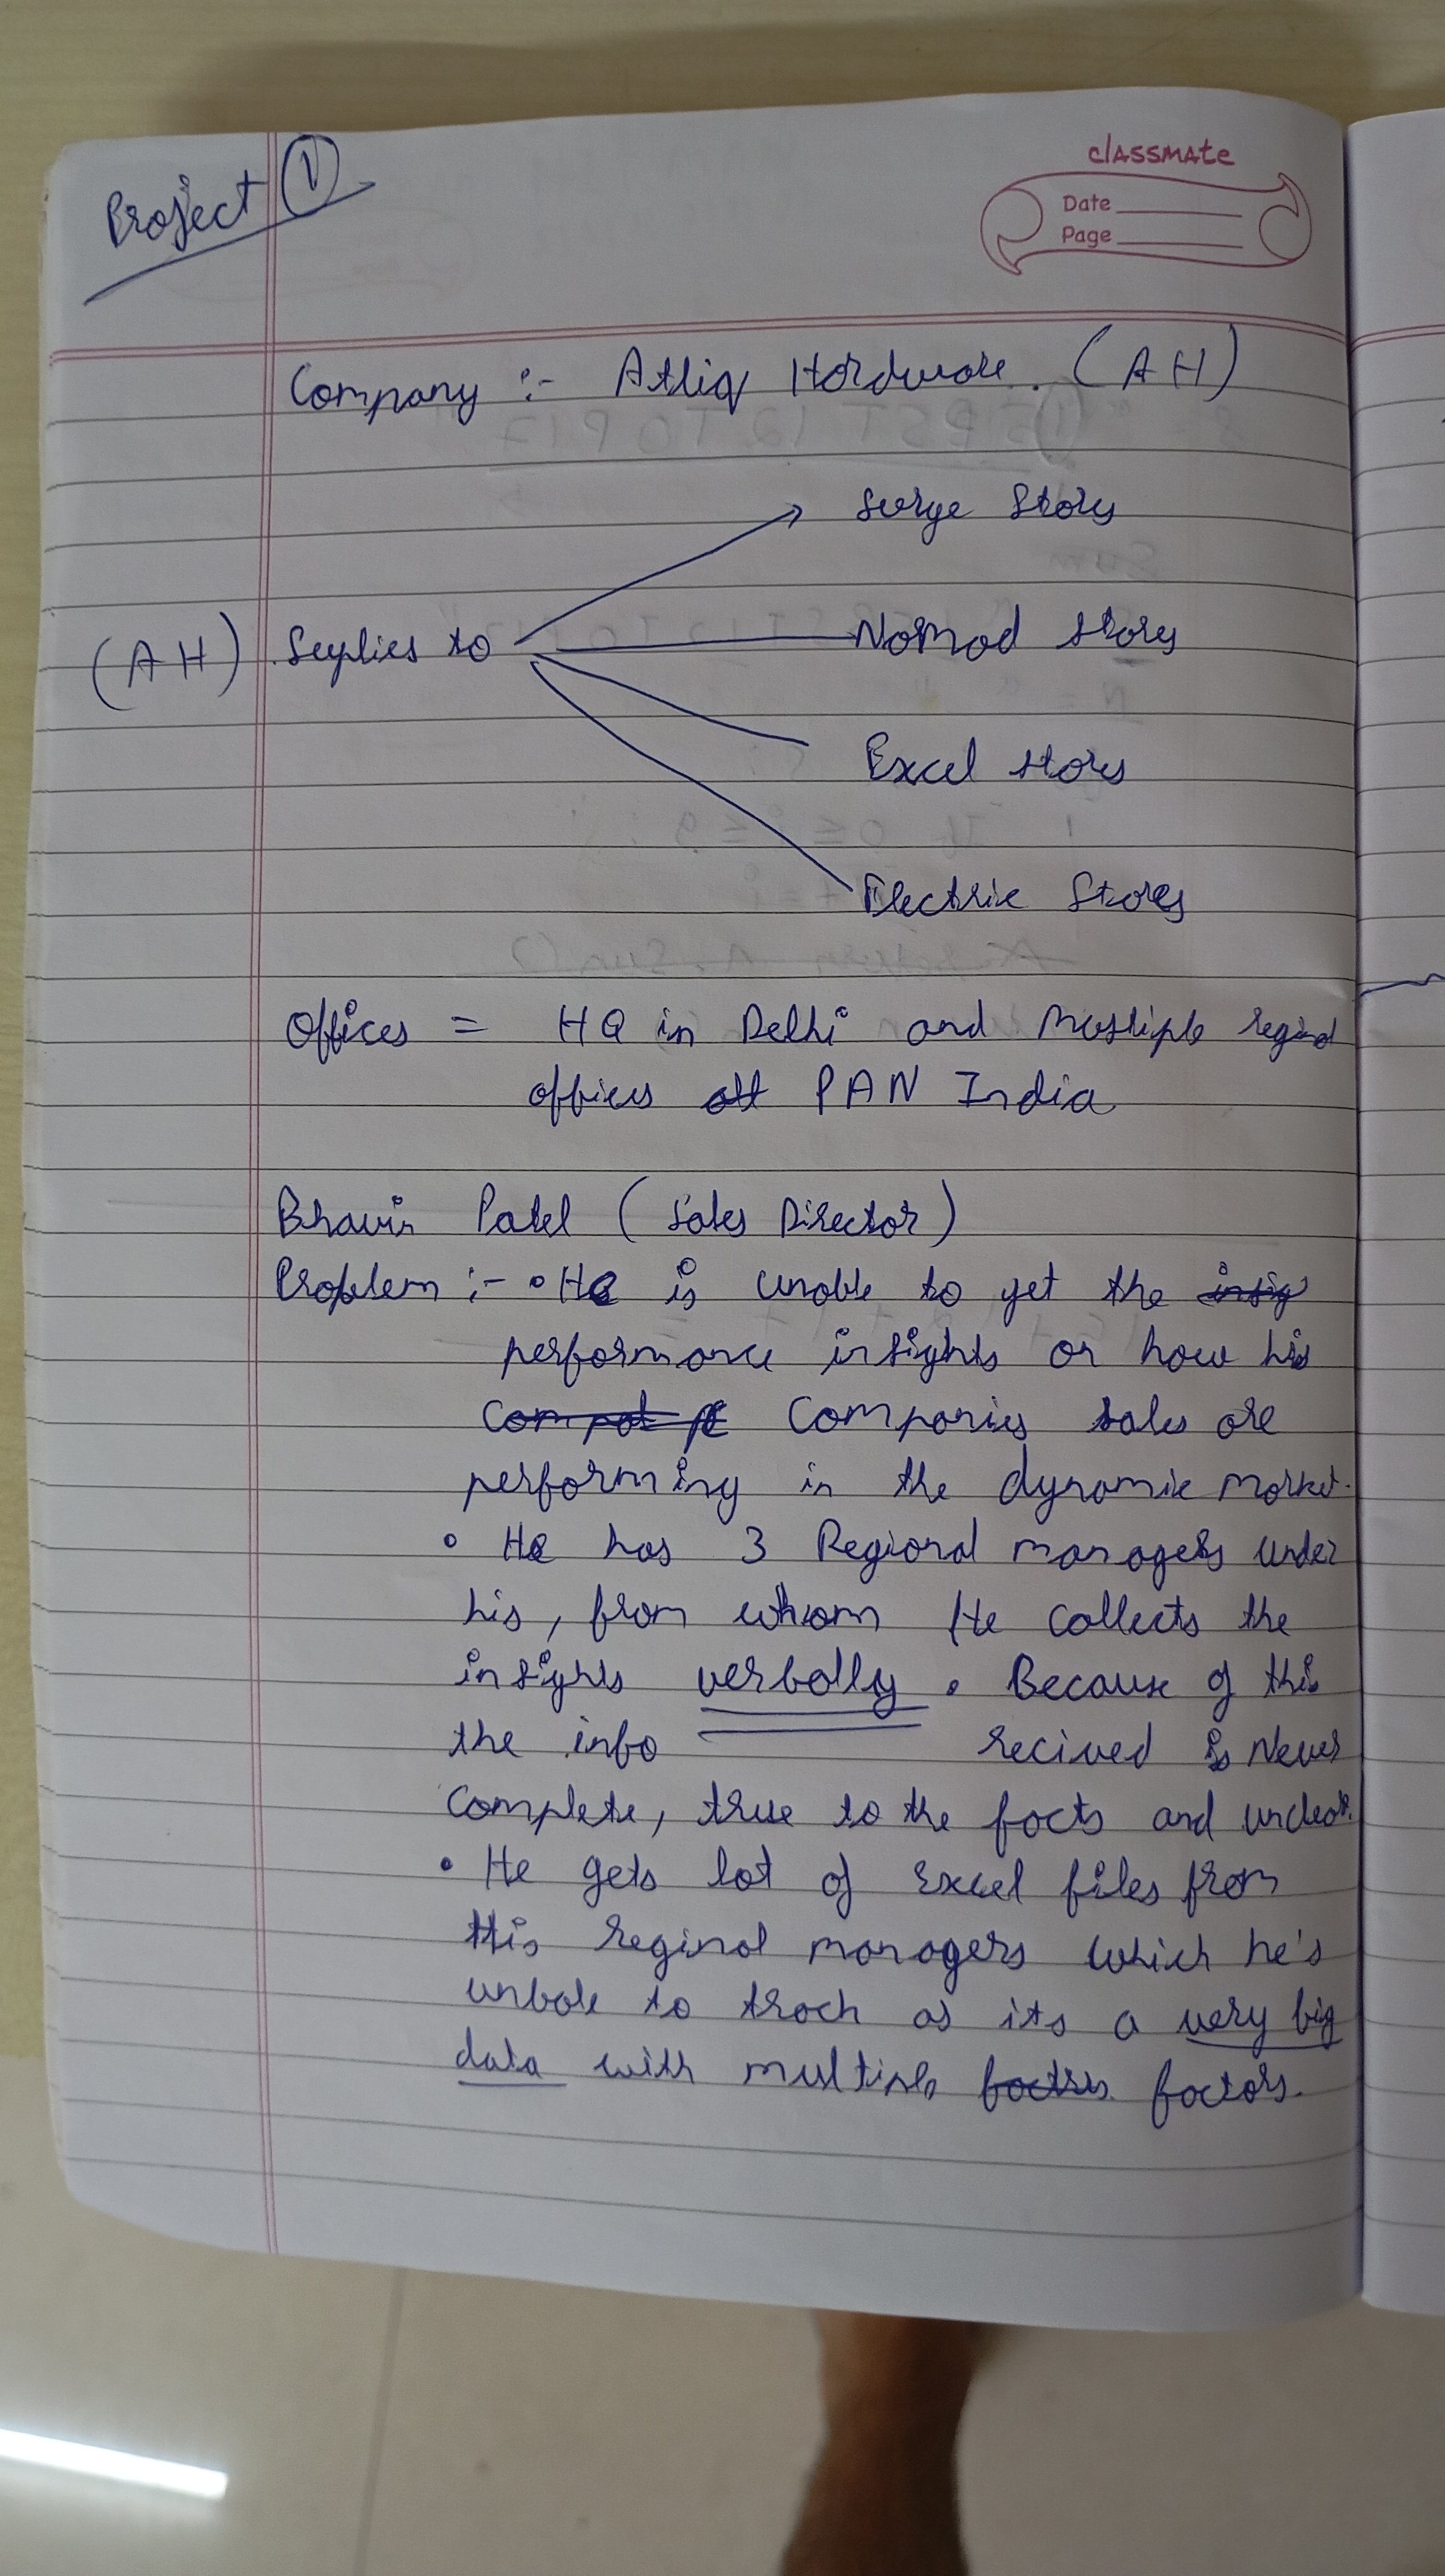 Project ①
classmate
Date
Page
Company :- Atliq Hardware. (AH)
Surge Stores
(AH) Suplies to
Nomad Stores
Excel stores
Electric Stores
Offices = HQ in Delhi and Multiple reginal
offices all PAN India
Bhavin Patel (Sales Director)
Problem :- • He is unable to get the insig
performance insights or how his
Companies sales are
performing in the dynamic market.
• He has 3 Regional managers under
his, from whom He collects the
insights verbally. Because of this
the info recived is Never
Complete, true to the facts and unclear.
• He gets lot of Excel files from
His reginal managers which he's
unbale to track as its a very big
data with multiple factors factors.